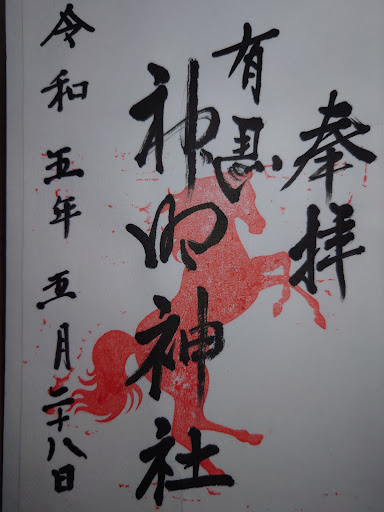 奉拝
有恩
神明神社
令和五年五月二十八日